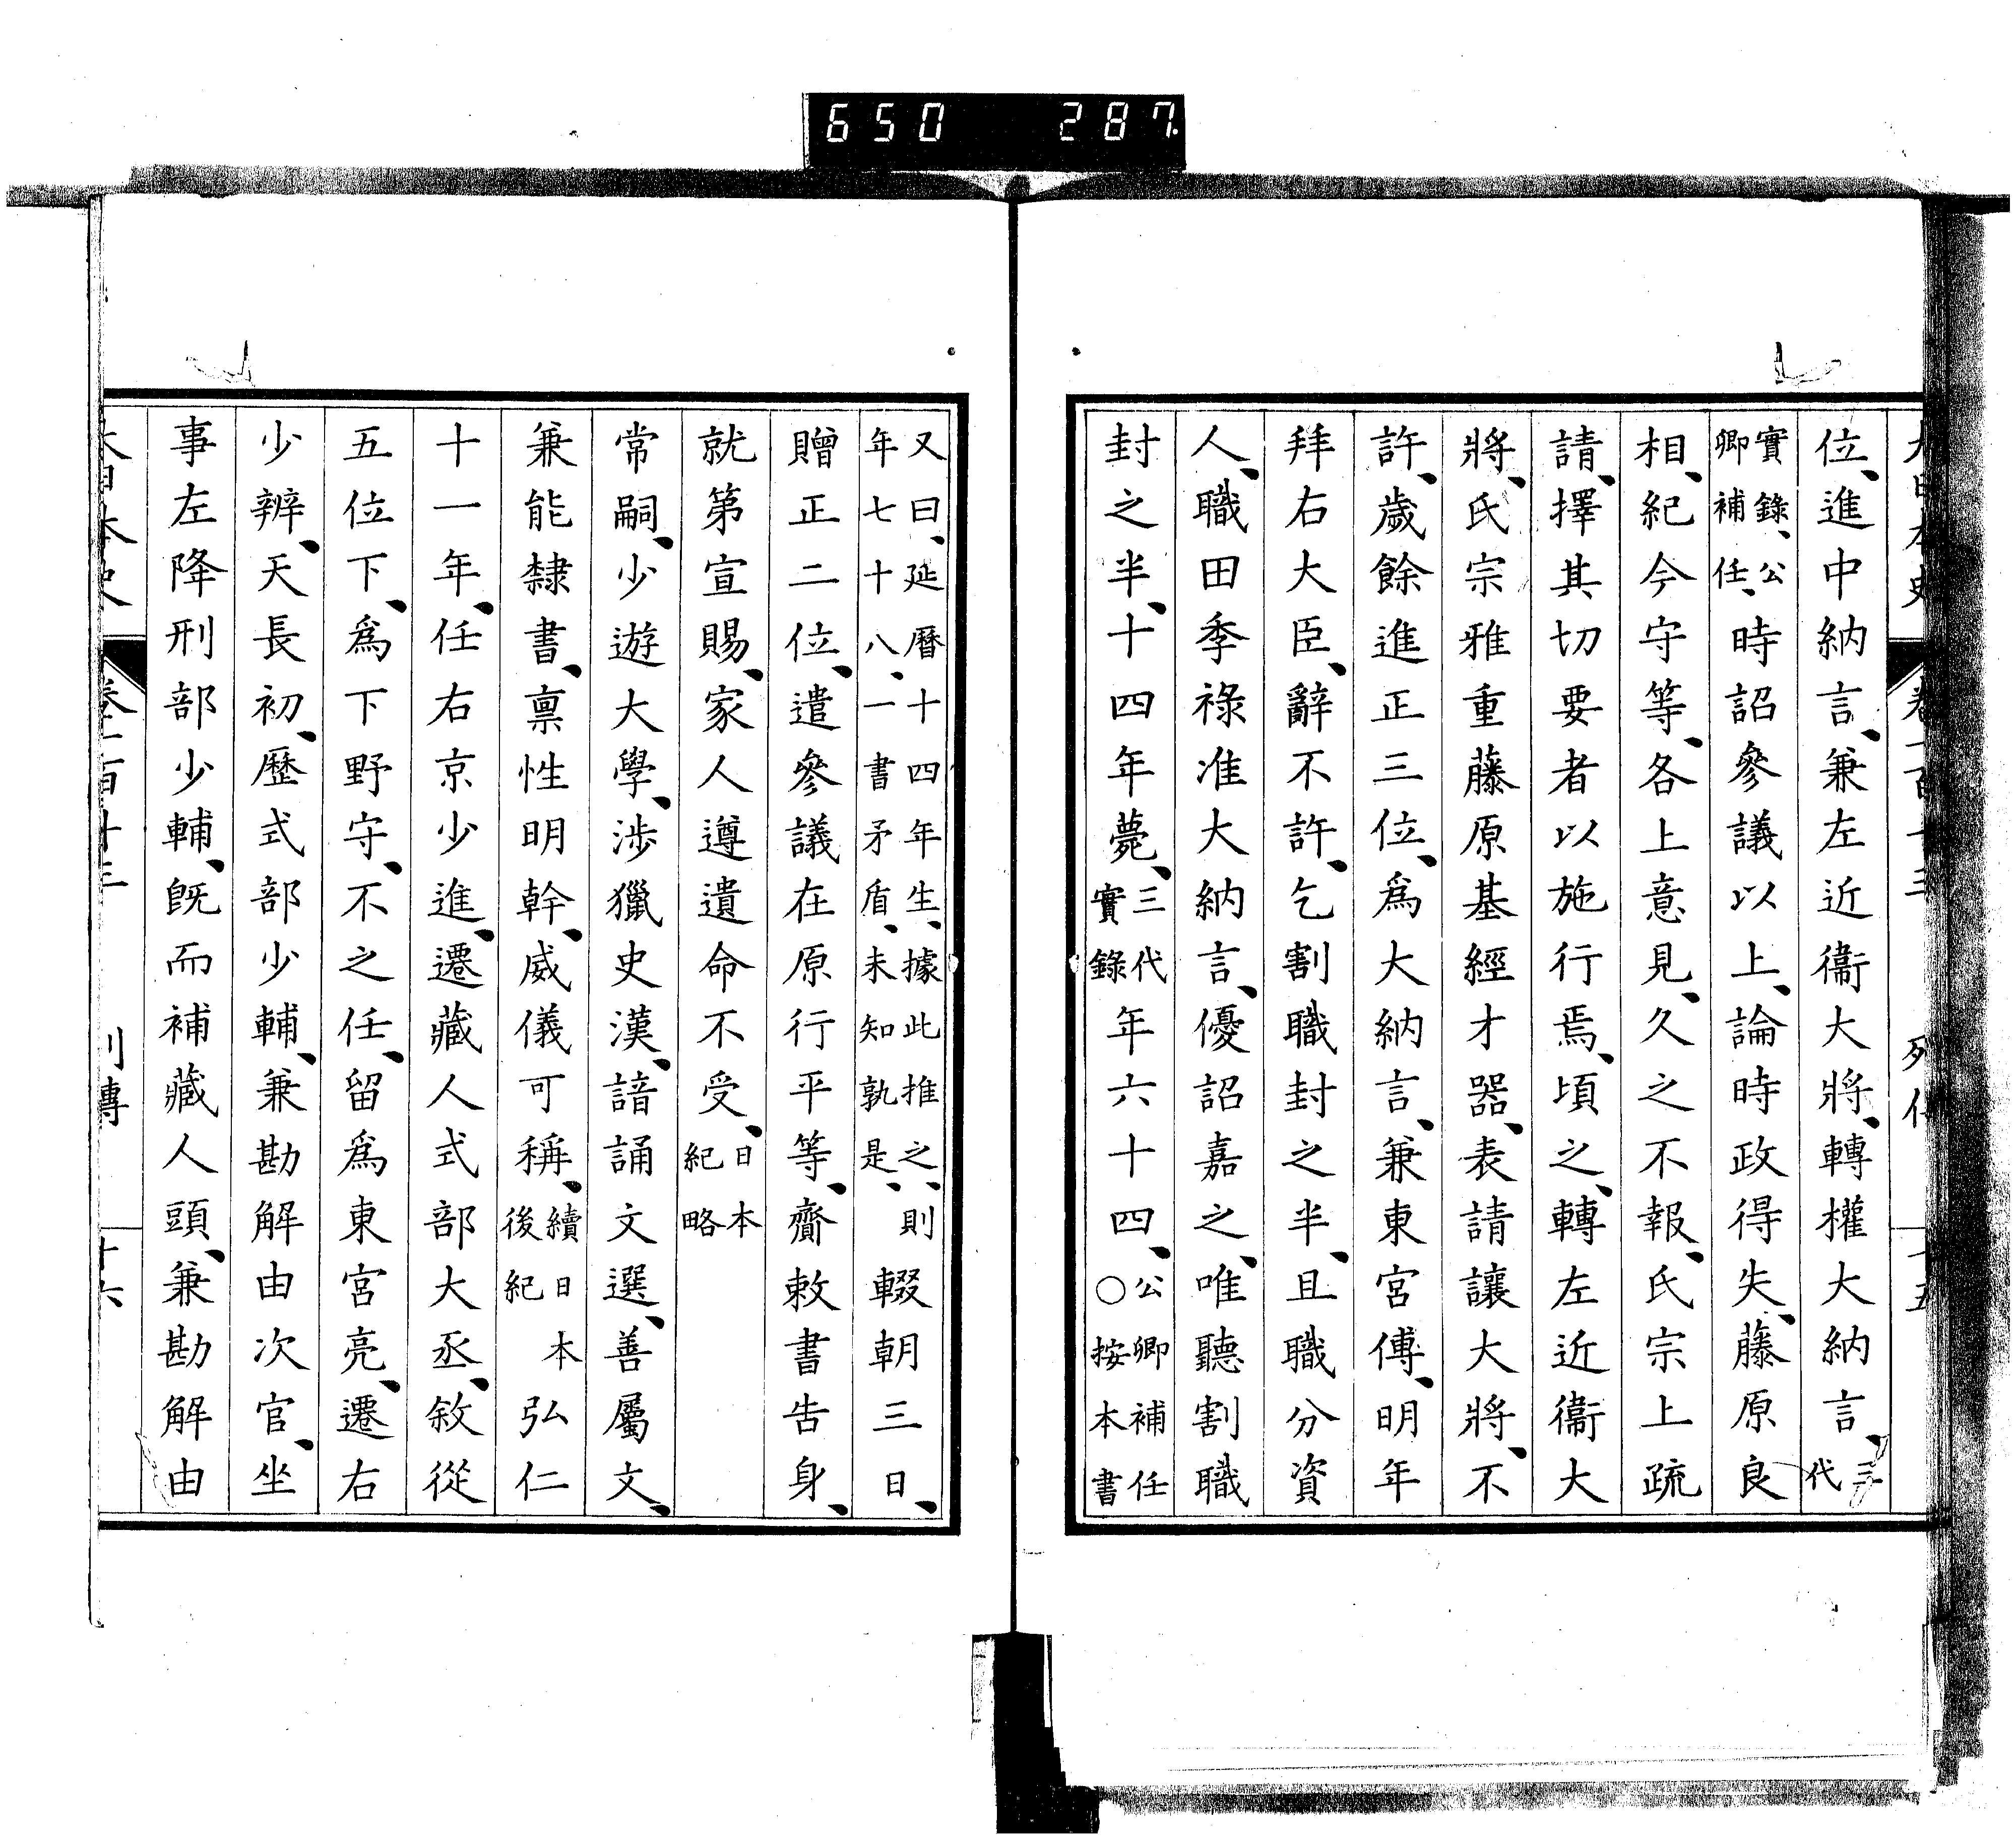 650 287
位、進中納言、兼左近衞大將、轉權大納言、三代
實錄、公卿補任、時詔參議以上、論時政得失、藤原良
相、紀今守等、各上意見、久之不報、氏宗上疏
請、擇其切要者以施行焉、頃之、轉左近衞大
將、氏宗雅重藤原基經才器、表請讓大將、不
許、歲餘進正三位、爲大納言、兼東宮傅、明年
拜右大臣、辭不許、乞割職封之半、且職分資
人、職田季祿准大納言、優詔嘉之、唯聽割職
封之半、十四年薨、三代實錄年六十四、公卿補任○按本書
又曰、延曆十四年生、據此推之、則年七十八、一書矛盾、未知孰是、輟朝三日、
贈正二位、遣參議在原行平等、齎敕書告身、
就第宣賜、家人遵遺命不受、日本紀略
常嗣、少遊大學、涉獵史漢、諳誦文選、善屬文、
兼能隸書、禀性明幹、威儀可稱、續日本後紀弘仁
十一年、任右京少進、遷藏人式部大丞、敘從
五位下、爲下野守、不之任、留爲東宮亮、遷右
少辨、天長初、歷式部少輔、兼勘解由次官、坐
事左降刑部少輔、旣而補藏人頭、兼勘解由